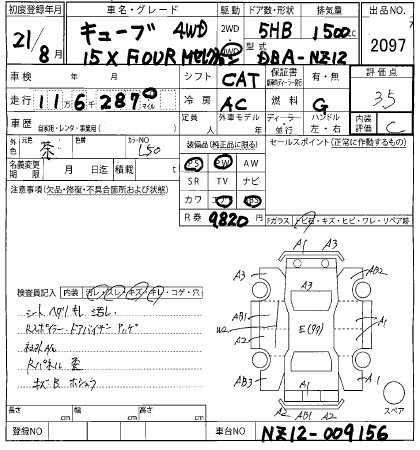 初度登録年月 車名・グレード 駆動 ドア数・形状 排気量 出品NO
21/8月 キューブ 4WD 2WD 4WD 5HB 1500cc 2097
15X FOUR 型式 DBA-NZ12
車検 年 月 シフト CAT 保証書 有・無 評価点
走行 11万6千287 マイル 冷房 AC 燃料 G 3.5
車歴 自家用・レンタ・事業用( ) 定員 人 外車モデル 年 ディーラー・並行 ハンドル 左・右 内装評価 C
外色 元色 茶 色替 カラーNO L50 装備品(純正品に限る) セールスポイント(正常に作動するもの)
PS PW AW
名義変更期限 月 日迄 積載 t SR TV ナビ
注意事項(欠品・修復・不具合箇所および状態) カワ
R券 9,820円 Fガラス トビ石・キズ・ヒビ・ワレ・リペア跡
検査員記入 内装 汚レ・スレ・キズ・キレ・コゲ・穴
シート ヘタリ モレ 汚レ
Rスポイラー・ドアバイザー
Rパネル 歪
キズB ホシュウ
A3 A1 A3
A3 AB2
AB1 W2 A2 E(97) A1
AB3 A1
A2 AB1 A2 スペア
長さ cm 幅 cm 高さ cm
登録NO 車台NO NZ12-009156